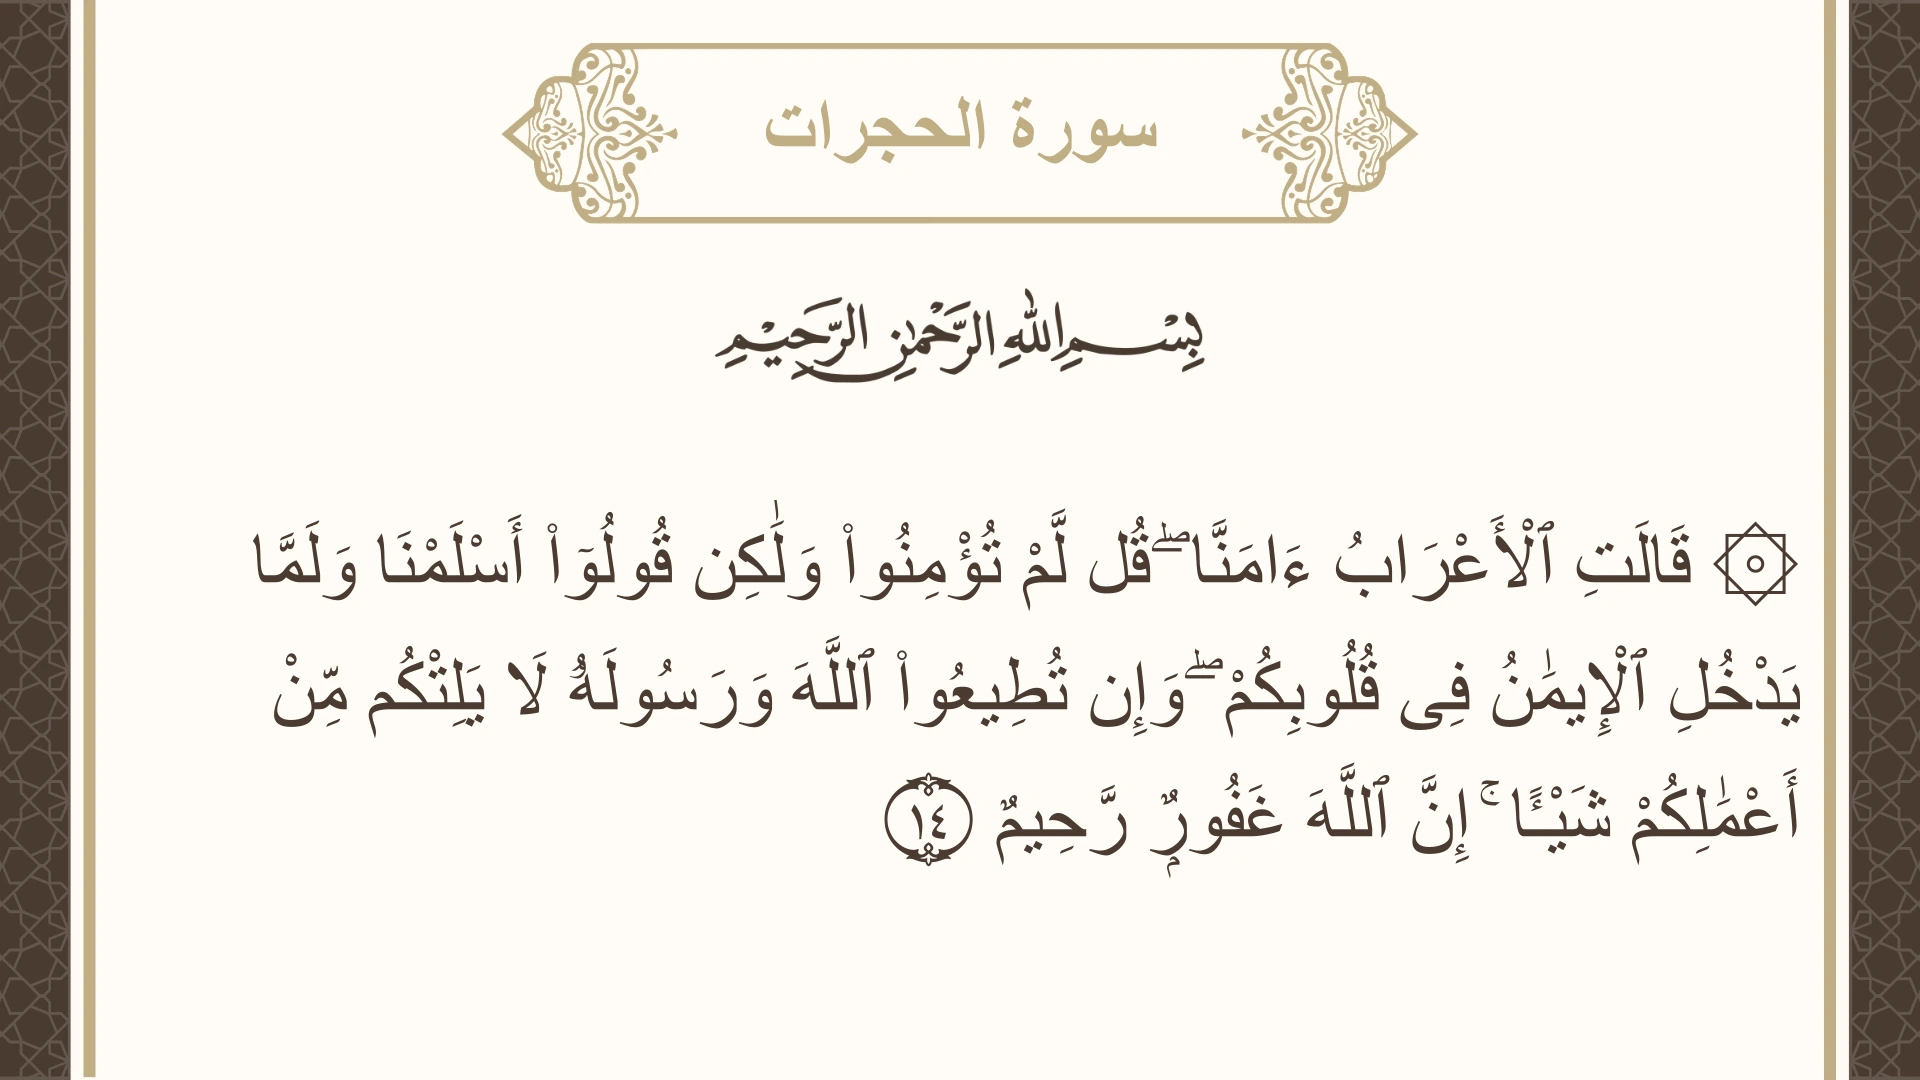 سورة الحجرات
بِسْمِ اللهِ الرَّحْمٰنِ الرَّحِيْمِ
۞ قَالَتِ ٱلْأَعْرَابُ ءَامَنَّا ۖ قُل لَّمْ تُؤْمِنُوا۟ وَلَٰكِن قُولُوٓا۟ أَسْلَمْنَا وَلَمَّا
يَدْخُلِ ٱلْإِيمَٰنُ فِى قُلُوبِكُمْ ۖ وَإِن تُطِيعُوا۟ ٱللَّهَ وَرَسُولَهُۥ لَا يَلِتْكُم مِّنْ
أَعْمَٰلِكُمْ شَيْـًٔا ۚ إِنَّ ٱللَّهَ غَفُورٌۭ رَّحِيمٌ ١٤